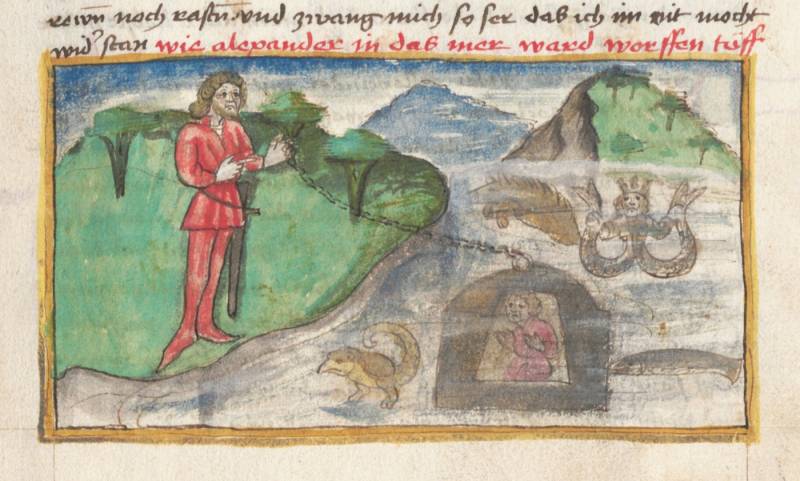 rewen noch rasten. und zwang mich so ser das ich im nit mocht
wider stan wie alexander in das mer ward worffen tüff